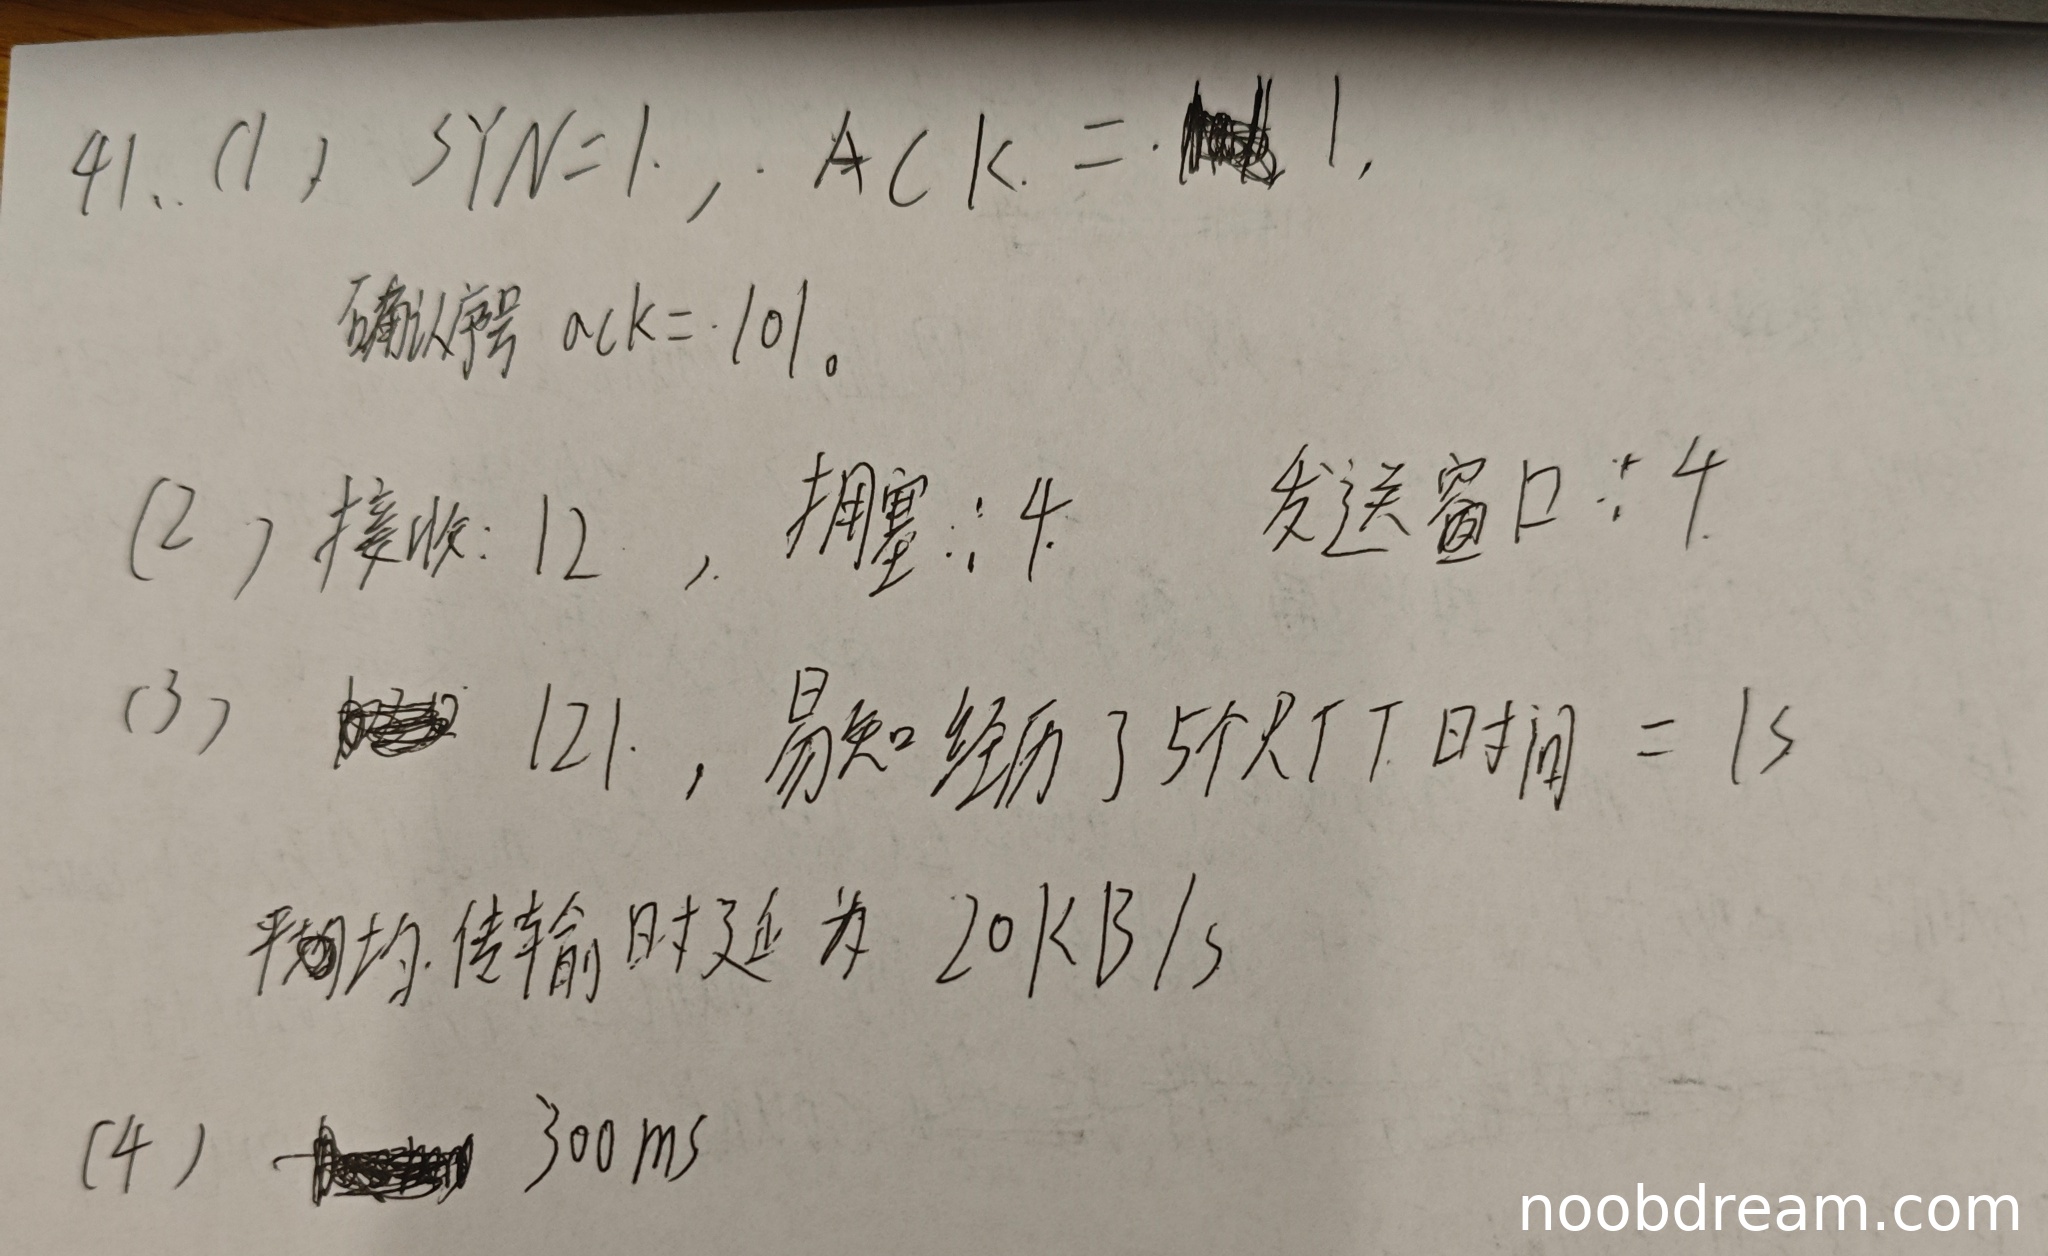 41、(1) SYN=1, ACK = 1,
确认序号 ack=101。
(2) 接收: 12 , 拥塞: 4 发送窗口: 4
(3) 121 , 易知经历了5个RTT时间 = 1s
平均传输时延为 20KB/s
(4) 300ms
noobdream.com